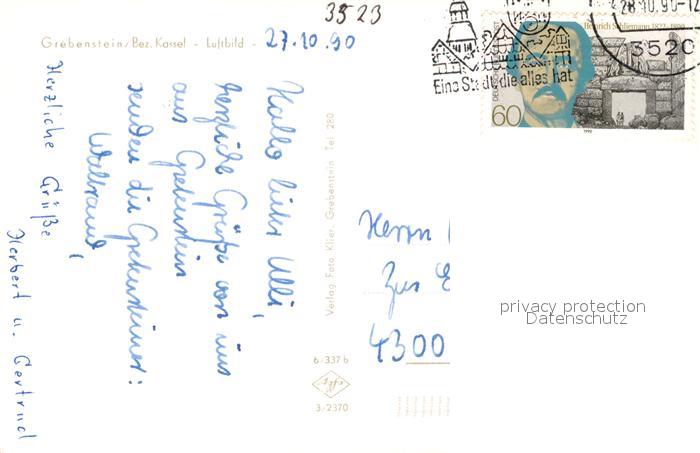 3523
Grebenstein/Bez. Kassel - Luftbild -
27.10.90
Hallo lieber Ulli,
herzliche Grüße von uns
aus Grebenstein
senden die Grebensteiner:
Waltraud,
Herzliche Grüße
Herbert u. Gertrud
Verlag Foto Klier, Grebenstein Tel 280
6/337 b
3/2370
Herrn
Zur E
4300
Eine Stadt, die alles hat
28.10.90-12
3520
Heinrich Schliemann 1822-1890
60
1990
privacy protection
Datenschutz